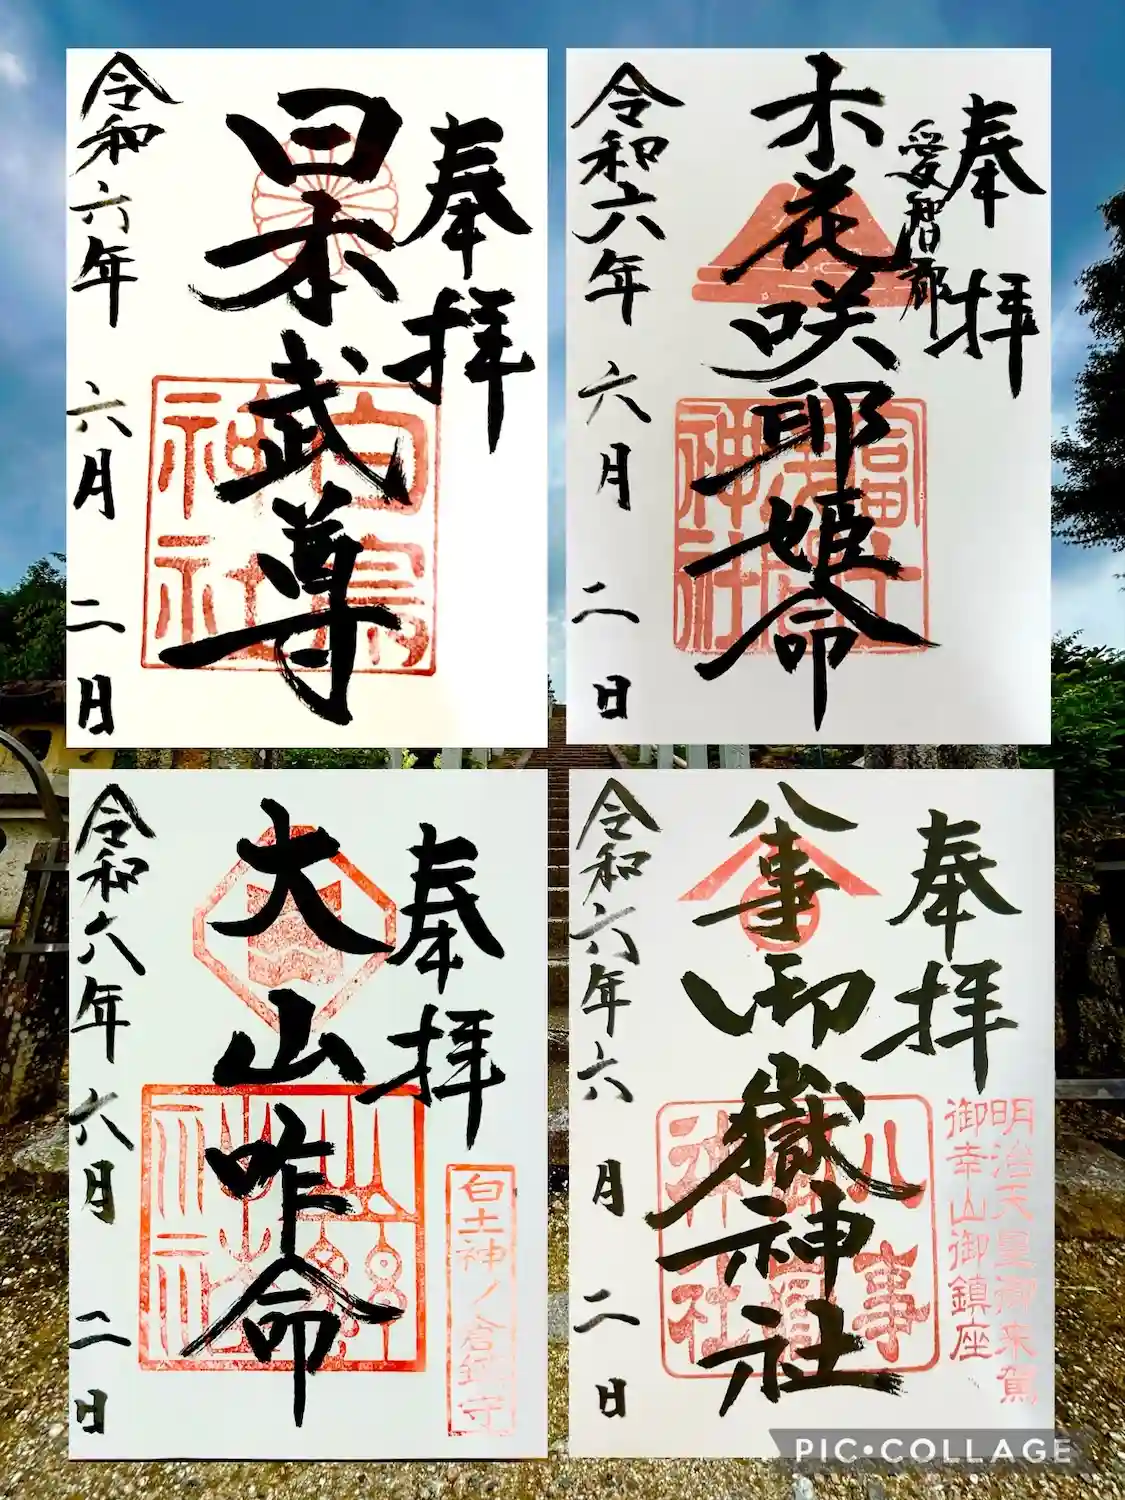 奉拝
日本武尊
白鳥
神社
令和六年 六月 二日
奉拝
愛智郡
木花咲耶姫命
令和六年 六月 二日
奉拝
白土神ノ倉鎮守
大山咋命
令和六年 六月 二日
奉拝
明治天皇御来駕
御幸山御鎮座
八事御嶽神社
八事
神社
令和六年 六月 二日
PIC•COLLAGE